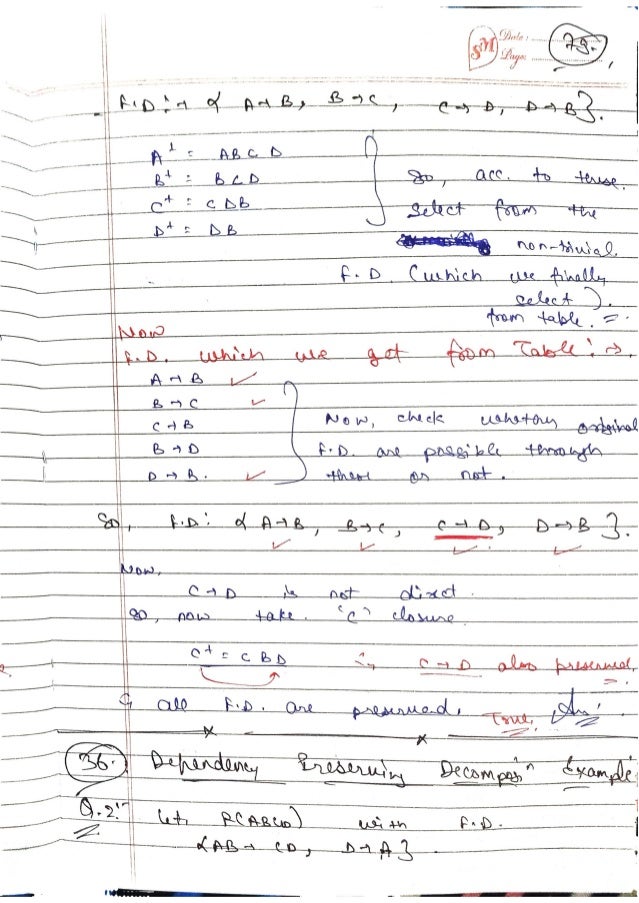 SM Date: 79.
Page:
F.D:→ { A→B, B→C, C→D, D→B}.
A⁺ = ABCD
B⁺ = BCD
C⁺ = CDB
D⁺ = DB
So, acc. to these
select from the
non-trivial
F.D. (which we finally
select).
from table.
Now
F.D. which we get from Table:→
A→B ✓
B→C ✓
C→B
B→D
D→B. ✓
Now, check whether original
F.D. are possible through
them or not.
So, F.D: { A→B, B→C, C→D, D→B }.
Now,
C→D is not direct
so, now take 'C' closure
C⁺ = CBD ∴ C→D also preserved.
∴ all F.D. are preserved. True, Ans
36. Dependency Preserving Decomposⁿ Example
Q.2:- Let, R(ABCD) with F.D.
{AB→CD, D→A}